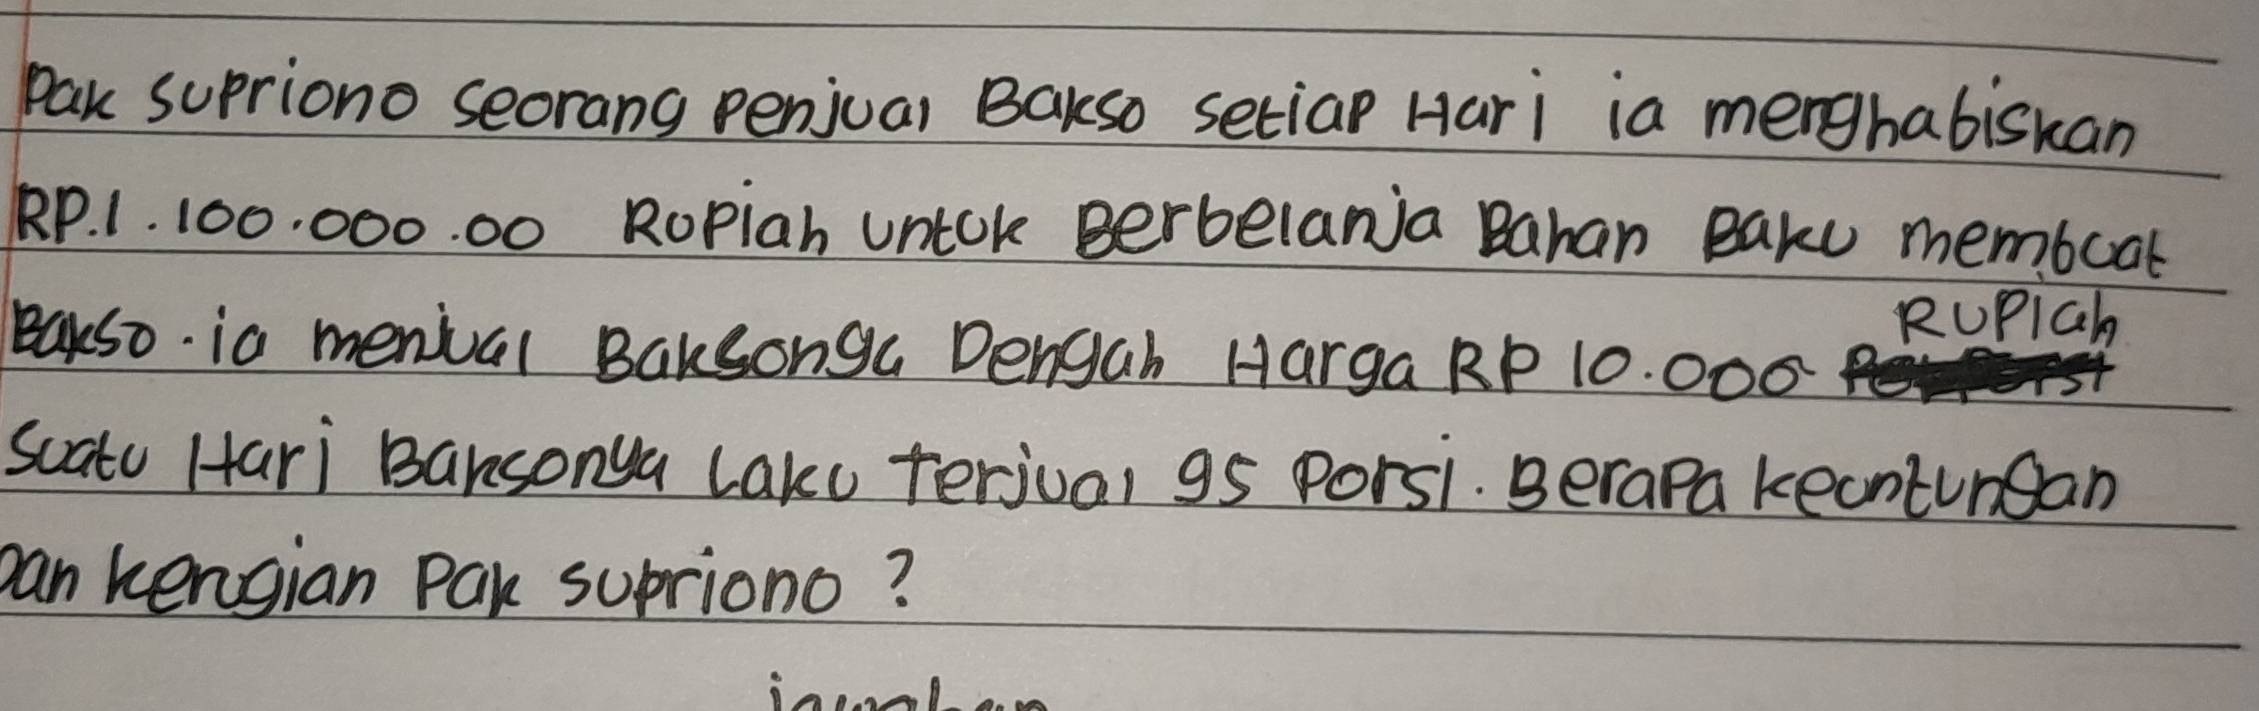 Pak supriono seorang penjual Bakso setiap Hari ia menghabiskan
RP.1.100.000.00 Rupiah untuk Berbelanja Bahan Baku membuat
Bakso. ia menjual Baksonya Dengan Harga RP 10.000 RUPIah
suatu Hari Baksonya Laku terjual 95 Porsi. Berapa keuntungan
Dan kerugian Pak supriono?
jawaban